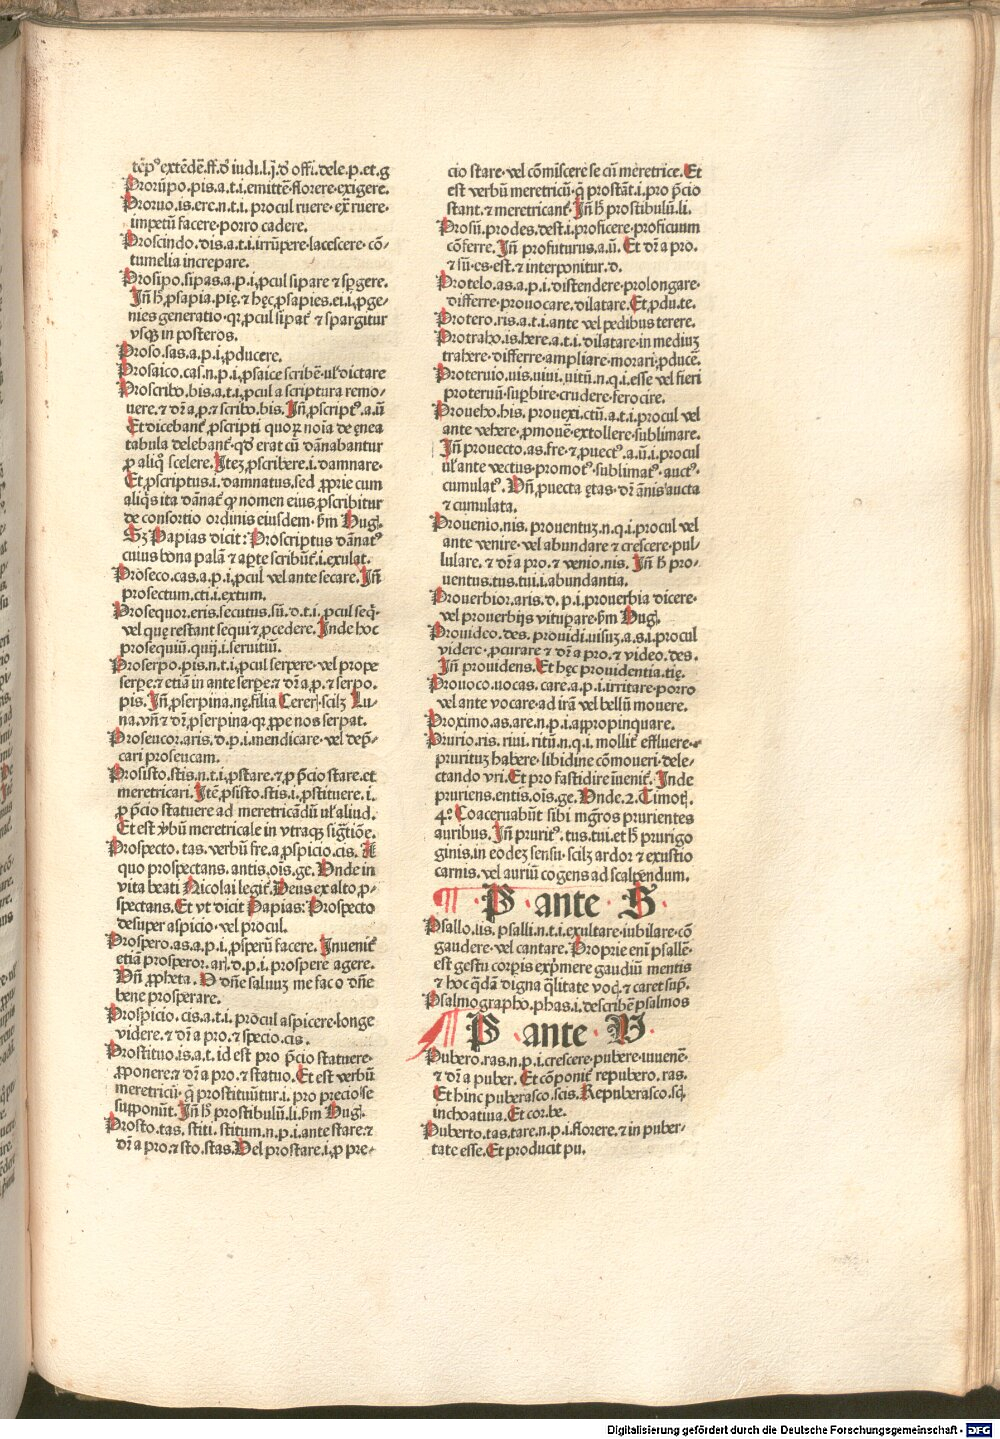 tēpꝰ extēdē.ff.ð iudi.l.j.ð offi.dele.p.et.g
Prorūpo.pis.a.t.i.emittē·florere·exigere.
Proruo.is.ere.n.t.i.procul ruere·ex̄ ruere·
impetū facere·porro cadere.
Proscindo.dis.a.t.i.irrūpere·lacescere·cō-
tumelia increpare.
Prosipo.sipas.a.p.i.ꝓcul sipare ⁊ sp̱gere.
Jn̄ h̄ ꝓsapia.pię.⁊ hęc ꝓsapies.ei.i.ꝓge-
nies generatio·qr ꝓcul sipat᷑ ⁊ spargitur
vsqꝫ in posteros.
Proso.sas.a.p.i.ꝓducere.
Prosaico.cas.n.p.i.ꝓsaice scribē·vľ dictare
Proscribo.bis.a.t.i.ꝓcul a scriptura remo-
uere.⁊ dr̄ a ꝓ.⁊ scribo.bis.Jn̄ ꝓscriptꝰ.a.ū
Et dicebant᷑ ꝓscripti quoꝝ noīa de ęnea
tabula delebant᷑·qð erat cū dānabantur
ꝓ aliqͦ scelere.Jteꝫ ꝓscribere.i.damnare·
Et ꝓscriptus.i.damnatus.sed ꝓprie cum
aliqͥs ita dānat᷑ ꝙ nomen eius ꝓscribitur
de consortio ordinis eiusdem·ẜm Hugꝭ.
Sꝫ Papias dicit: Proscriptus dānatꝰ
cuius bona palā ⁊ aꝑte scribūt᷑.i.exulat.
Proseco.cas.a.p.i.ꝓcul vel ante secare.Jn̄
prosectum.cti.i.extum.
Prosequor.eris.secutus.sū.d.t.i.ꝓcul seqͥ·
vel quę restant sequi ⁊ ꝓcedere.Jnde hoc
prosequiū.quij.i.seruitiū.
Proserpo.pis.n.t.i.ꝓcul serpere·vel prope
serꝑe.⁊ etiā in ante serꝑe.⁊ dr̄ a ꝓ.⁊ serpo.
pis.Jn̄ ꝓserpina.nę.filia Cererꝭ.scilꝫ Lu-
na.vn̄ ⁊ dr̄ ꝓserpina·qr ꝓpe nos serpat.
Proseucor.aris.d.p.i.mendicare·vel dep̄-
cari proseucam.
Prosisto.stis.n.t.i.ꝓstare.⁊ ꝓ p̄cio stare.et
meretricari.Jtē ꝓsisto.stis.i.ꝓstituere.i.
ꝓ p̄cio statuere ad meretricādū vľ aliud.
Et est ꝟbū meretricale in vtraqꝫ sigtiōe.
Prospecto.tas.verbū fre.a ꝓspicio.cis.A
quo prospectans.antis.oīs.ge.Vnde in
vita beati Nicolai legit᷑.Deus ex alto ꝓ-
spectans.Et vt dicit Papias: Prospecto
desuper aspicio·vel procul.
Prospero.as.a.p.i.ꝓsperū facere.Jnuenit᷑
etiā prosperor.arꝭ.d.p.i.prospere agere.
Vn̄ ꝓpheta.O dn̄e saluuꝫ me fac o dn̄e
bene prosperare.
Prospicio.cis.a.t.i.procul aspicere·longe
videre.⁊ dr̄ a pro.⁊ specio.cis.
Prostituo.is.a.t.id est pro p̄cio statuere·
ꝓponere.⁊ dr̄ a pro.⁊ statuo.Et est verbū
meretricū·q̄ prostituūtur.i.pro precio se
supponūt.Jn̄ h̄ prostibulū.li.ẜm Hugꝭ.
Prosto.tas.stiti.stitum.n.p.i.ante stare.⁊
dr̄ a pro.⁊ sto.stas.Vel prostare.i.ꝓ pre-
cio stare·vel cōmiscere se cū meretrice.Et
est verbū meretricū·q̄ prostāt.i.pro p̄cio
stant.⁊ meretricant᷑.Jn̄ h̄ prostibulū.li.
Prosū.prodes.dest.i.proficere·proficuum
cōferre.Jn̄ profuturus.a.ū.Et dr̄ a pro.
⁊ sū.es.est.⁊ interponitur.d.
Protelo.as.a.p.i.distendere·prolongare·
differre·prouocare.dilatare.Et ꝓdu.te.
Protero.ris.a.t.i.ante vel pedibus terere.
Protraho.is.here.a.t.i.dilatare·in mediuꝫ
trahere·differre·ampliare·morari·ꝓducē.
Proteruio.uis.uiui.uitū.n.q.i.esse vel fieri
proteruū·suꝑbire·crudere·ferocire.
Proueho.his.prouexi.ctū.a.t.i.procul vel
ante vehere·ꝓmouē·extollere·sublimare.
Jn̄ prouecto.as.fre.⁊ ꝓuectꝰ.a.ū.i.procul
vľ ante vectus·promotꝰ·sublimatꝰ·auctꝰ·
cumulatꝰ.Vn̄ ꝓuecta ętas·dr̄ ānis aucta
⁊ cumulata.
Prouenio.nis.prouentuꝫ.n.q.i.procul vel
ante venire·vel abundare ⁊ crescere·pul-
lulare.⁊ dr̄ a pro.⁊ venio.nis.Jn̄ h̄ pro-
uentus.tus.tui.i.abundantia.
Prouerbior.aris.d.p.i.prouerbia dicere·
vel prouerbijs vituꝑare·ẜm Hugꝭ.
Prouideo.des.prouidi.uisuꝫ.a.s.i.procul
videre·ꝓcurare ⁊ dr̄ a pro.⁊ video.des.
Jn̄ prouidens.Et hęc prouidentia.tię.
Prouoco.uocas.care.a.p.i.irritare·porro
vel ante vocare·ad irā vel bellū mouere.
Proximo.as.are.n.p.i.appropinquare.
Prurio.ris.riui.ritū.n.q.i.mollit᷑ effluere·
pruritus habere·libidine cōmoueri·dele-
ctando vri.Et pro fastidire īuenit᷑.Jnde
pruriens.entis.oīs.ge.Vnde.2.Timotꝭ.
4º Coaceruabūt sibi mgros prurientes
auribus.Jn̄ pruritꝰ.tus.tui.et h̄ prurigo
ginis.in eodeꝫ sensu·scilꝫ ardor ⁊ exustio
carnis.vel auriū cogens ad scalpendum.
¶ P ante S
Psallo.lis.psalli.n.t.i.exultare·iubilare·cō
gaudere·vel cantare.Proprie eni psallē·
est gestu corꝑis exp̄mere gaudiū mentis
⁊ hoc qͣdā digna qͣlitate vocꝭ.⁊ caret sup̄.
Psalmographo.phas.i.describē psalmos
¶ P ante V
Pubero.ras.n.p.i.crescere·pubere·iuuenē·
⁊ dr̄ a puber.Et cōponit᷑ repubero.ras.
Et hinc puberasco.scis.Repuberasco.scꝭ.
inchoatiua.Et cor.be.
Puberto.tas.tare.n.p.i.florere.⁊ in puber-
tate esse.Et producit pu.
Digitalisierung gefördert durch die Deutsche Forschungsgemeinschaft - DFG